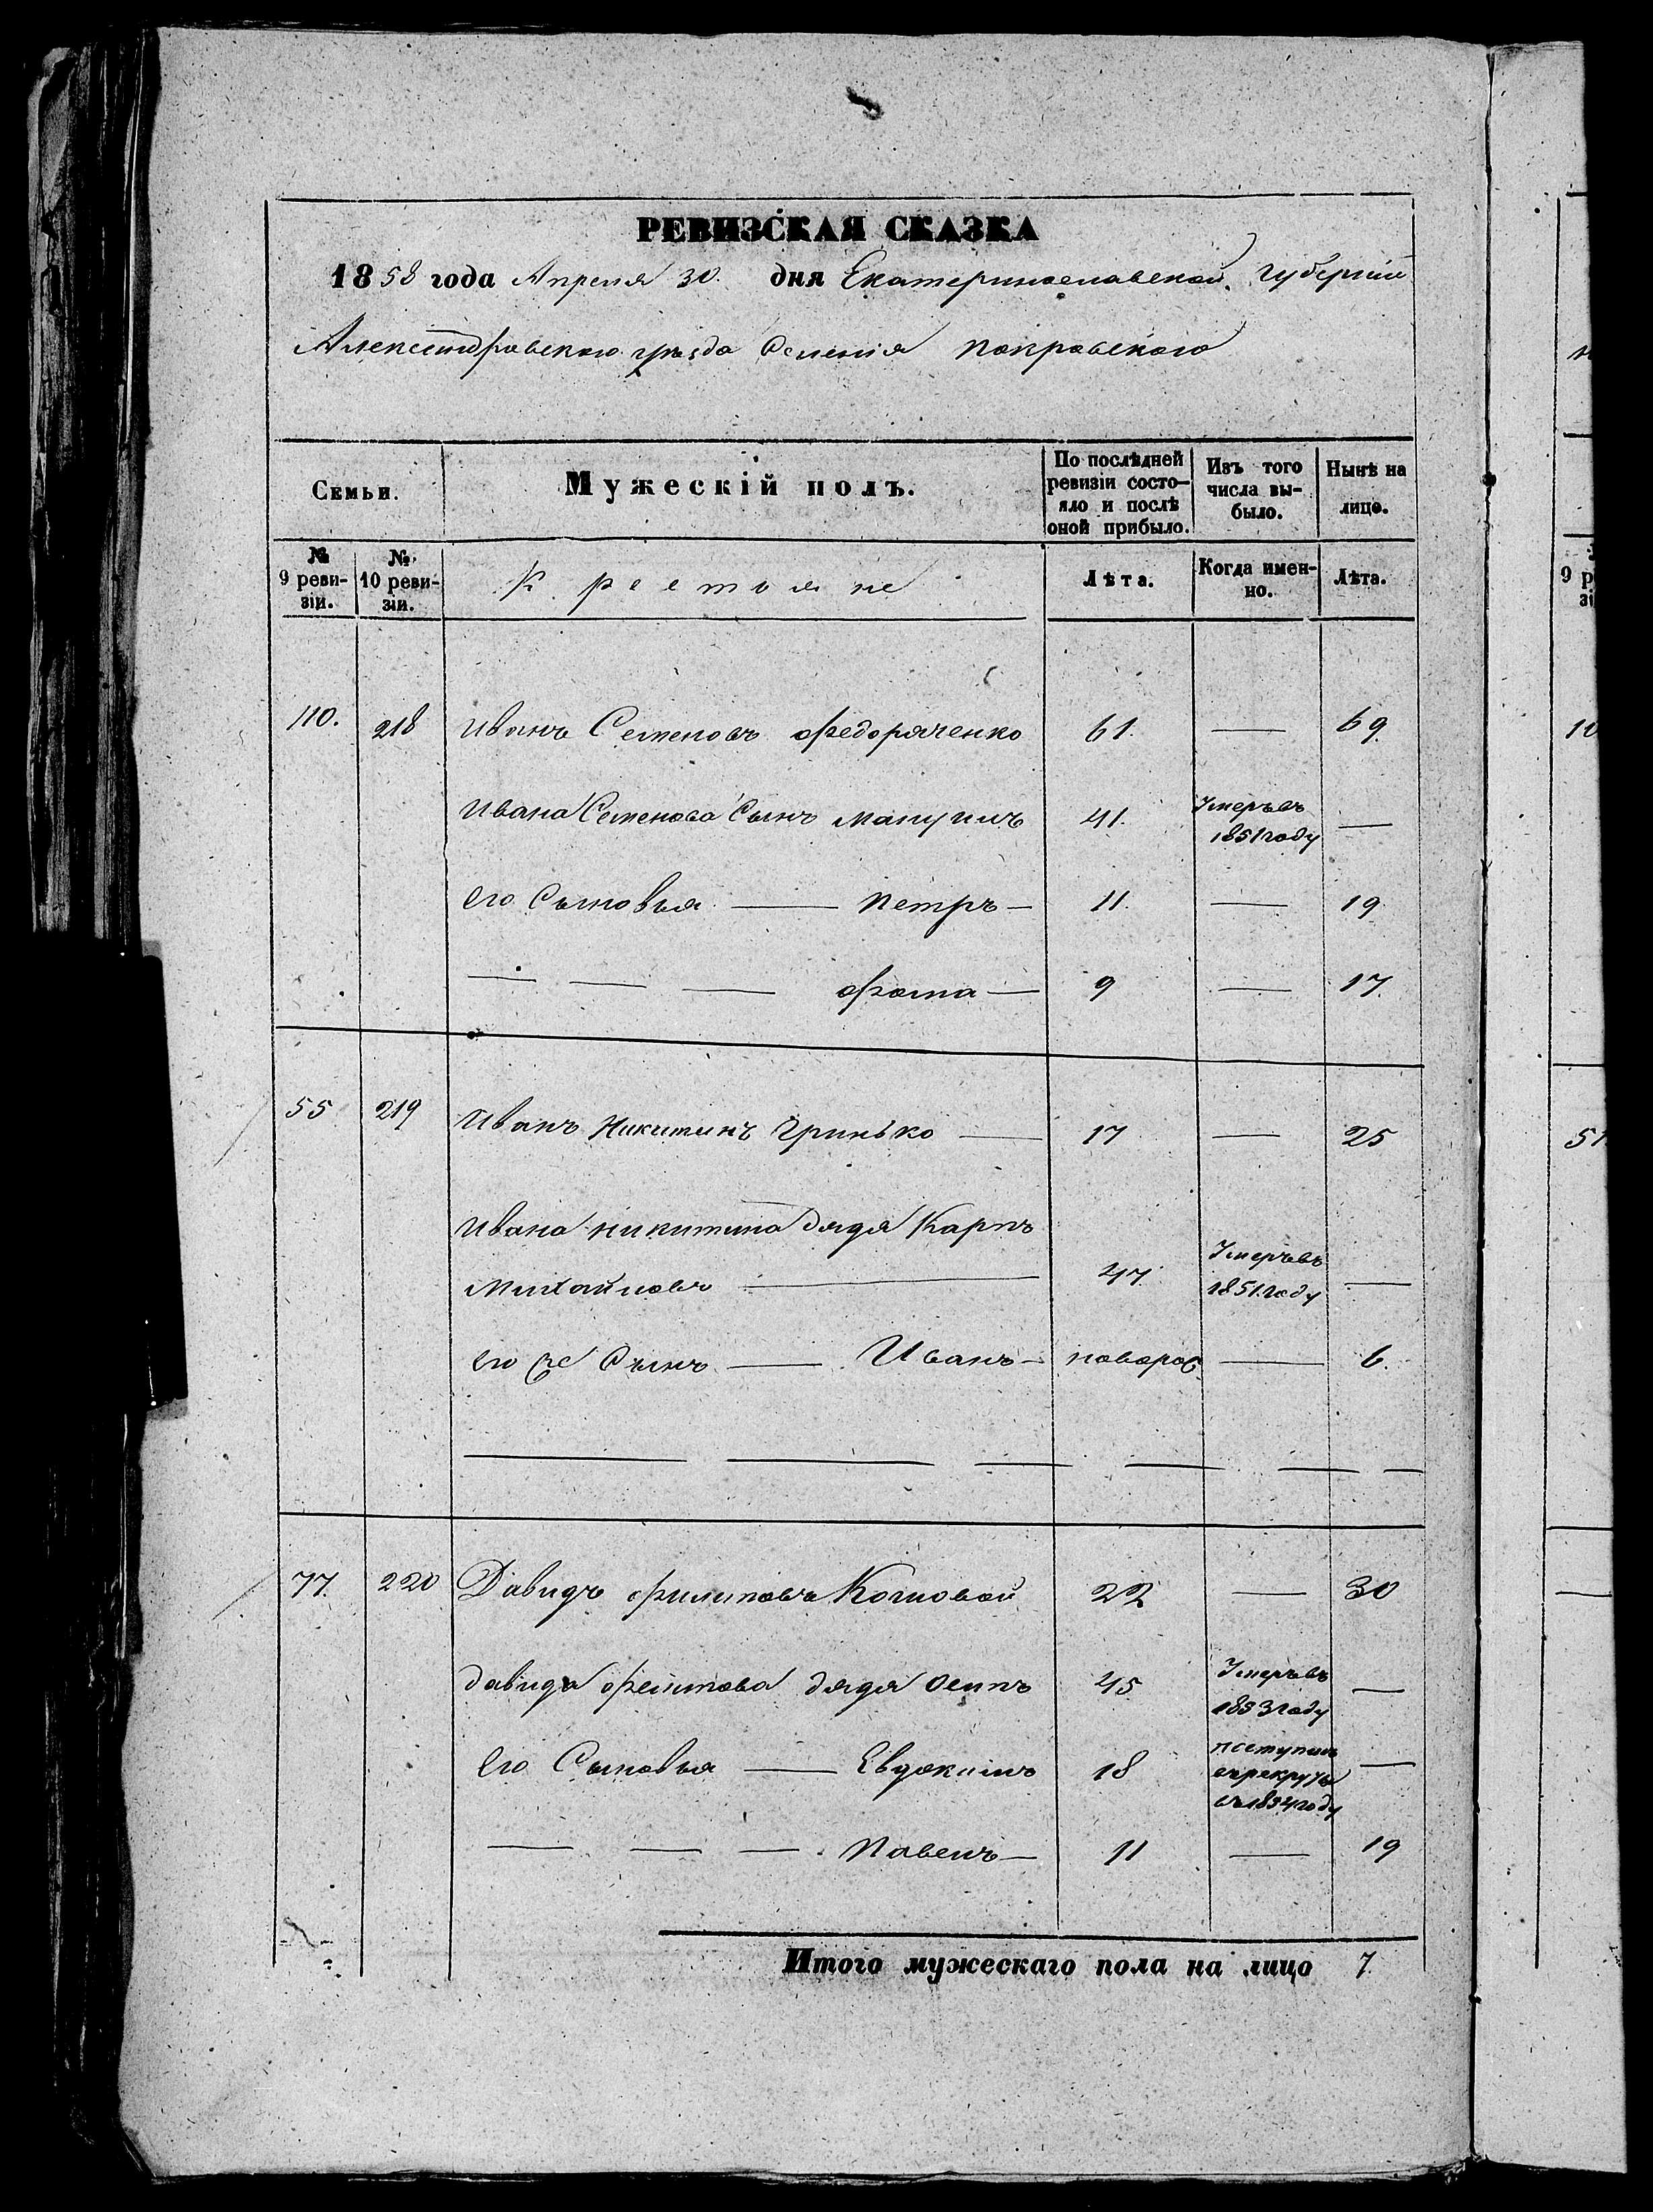 РЕВИЗСКАЯ СКАЗКА
1858 года Апреля 30. дня Екатеринославской Губернии
Александровского уѣзда Селенія покровского
Семьи. Мужескій полъ. По послѣдней ревизіи состояло и послѣ оной прибыло. Изъ того числа выбыло. Нынѣ на лицо.
№ 9 ревизіи. № 10 ревизіи. Крестьяне Лѣта. Когда именно. Лѣта.
110. 218 Иванъ Семеновъ Федоряченко 61. — 69.
Ивана Семенова Сынъ мануилъ 41. Умеръ въ 1851 году —
его Сыновья — Петръ — 11. — 19
— — — фома — 9 — 17.
55 219 Иванъ Никитинъ Гринько — 17 — 25
Ивана никитина дядя Карпъ
Михайловъ — 47. Умеръ въ 1851. году —
его же Сынъ — Иванъ — новорож — 6.
77. 220 Давидъ филиповъ Кошовой 22 — 30
давида филипова дядя осипъ 45 Умеръ въ 1853 году —
его Сыновья — Евдокимъ 18 поступилъ въ рекруты въ 1854 году —
— — — Павелъ — 11 — 19
Итого мужескаго пола на лицо 7.
9 ре
зі